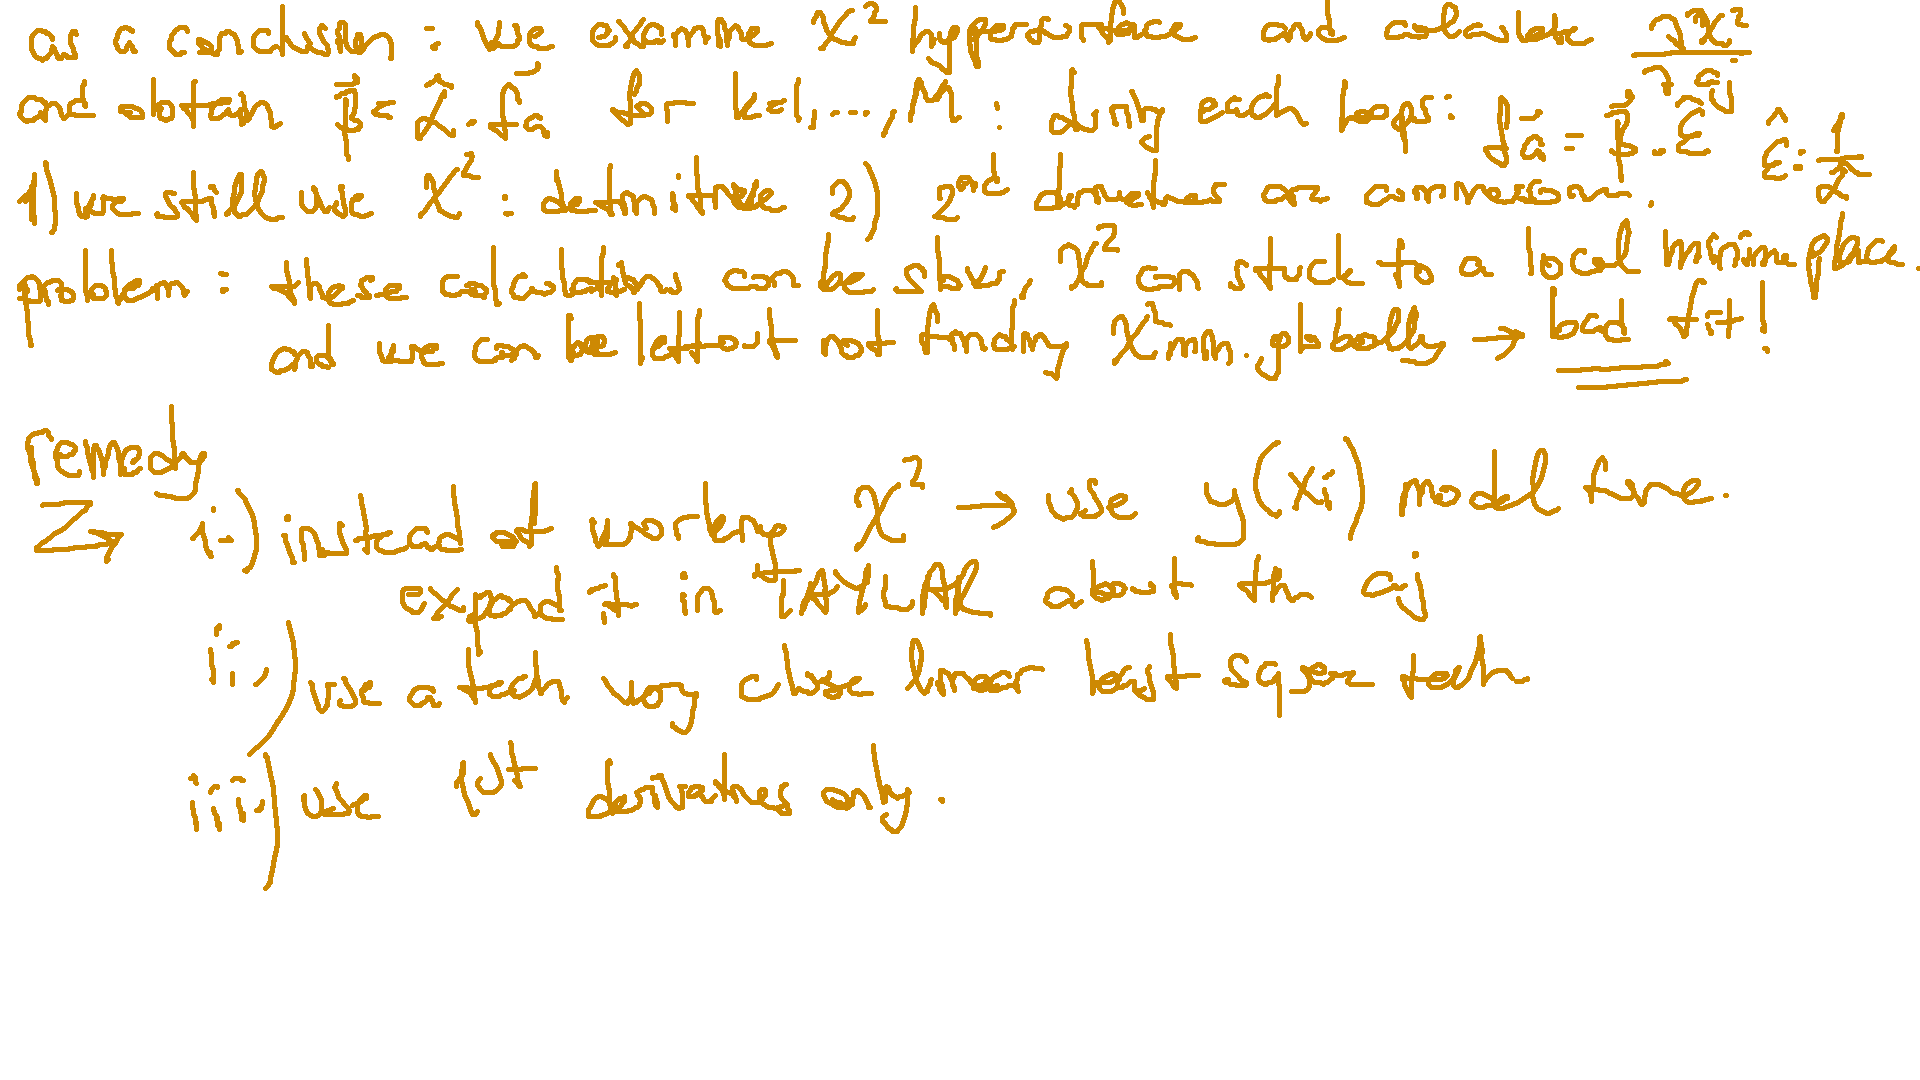 as a conclusion : we examine χ² hypersurface and calculate ∂χ²/∂aj
and obtain β⃗ = α̂ . δa⃗ for k=1,...,M : during each loops: δa⃗ = β⃗ . ε̂ ε̂ = 1/α̂
1) we still use χ² : definitive 2) 2nd derivatives are
problem : these calculations can be slow, χ² can stuck to a local minima place.
and we can be leftout not finding χ²min. globally → bad fit!
remedy
i-) instead of working χ² → use y(xi) model func.
expand it in TAYLAR about the aj
ii-) use a tech very close linear least square tech
iii-) use 1st derivatives only.